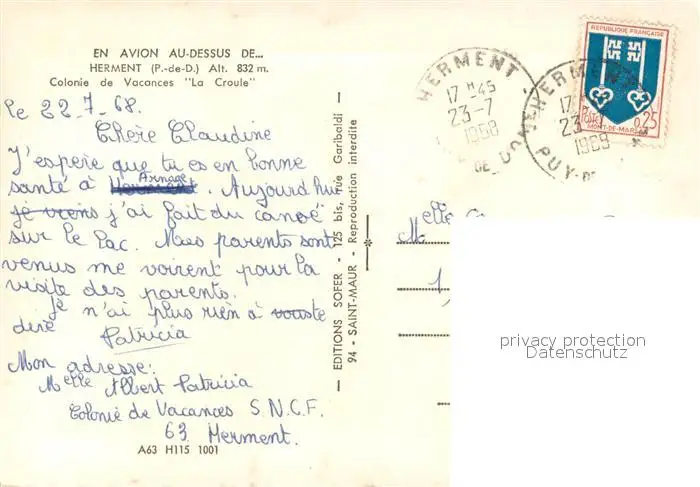 EN AVION AU-DESSUS DE...
HERMENT (P.-de-D.) Alt. 832 m.
Colonie de Vacances "La Croule"
le 22.7.68.
Chère Claudine
J'espère que tu es en bonne
santé à Arnage. Aujourd'hui
je viens j'ai fait du canoë
sur le lac. Mes parents sont
venus me voirent pour la
visite des parents.
je n'ai plus rien à
dire
Patricia
Mon adresse:
Melle Albert Patricia
Colonie de Vacances S.N.C.F.
63 Herment.
A63 H115 1001
— EDITIONS SOFER - 125 bis, rue Garibaldi —
94 - SAINT-MAUR - Reproduction interdite
HERMENT
17H45
23-7
1968
DE DOME
HERMENT
17
23-7
1968
PUY-DE
REPUBLIQUE FRANÇAISE
POSTES
0,25
MONT-DE-MARSAN
Melle
privacy protection
Datenschutz